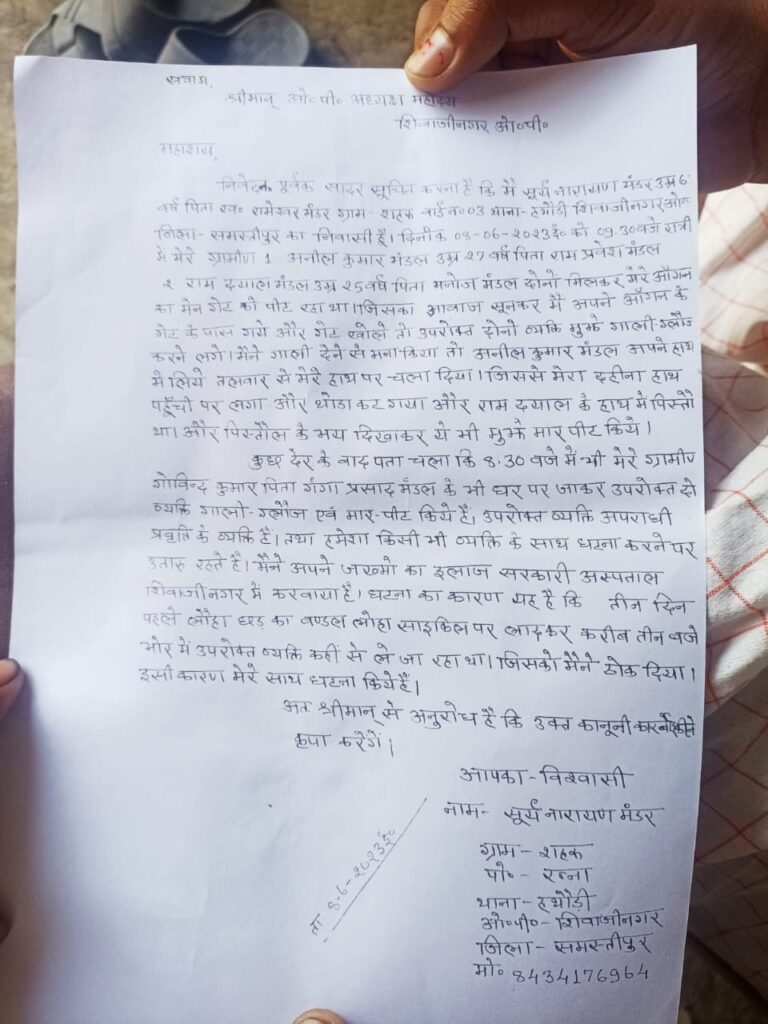 सेवामें,
श्रीमान् ओ०पी० अध्यक्ष महोदय
शिवाजीनगर ओ०पी०
महाशय,
निवेदन पूर्वक सादर सूचित करना है कि मैं सूर्य नारायण मंडर उम्र 6
वर्ष पिता स्व० रामेश्वर मंडर ग्राम- शहरू वार्ड न० 03 थाना- हथौडी शिवाजीनगर ओ०
जिला- समस्तीपुर का निवासी हूँ। दिनांक 08-06-2023ई० को 09.30 बजे रात्री
में मेरे ग्रामीण 1 अनील कुमार मंडल उम्र 27 वर्ष पिता राम प्रवेश मंडल
२ राम दयाल मंडल उम्र २5 वर्ष पिता मनोज मंडल दोनों मिलकर मेरे आँगन
का मेन गेट को पीट रहा था। जिसका आवाज सूनकर मैं अपने आँगन के
गेट के पास गये और गेट खोले तो उपरोक्त दोनो व्यक्ति मुझे गाली-ग्लौज
करने लगे। मैंने गाली देने से मना किया तो अनील कुमार मंडल अपने हाथ
में लिये तलवार से मेरे हाथ पर चला दिया। जिससे मेरा दहीना हाथ
पहूँचो पर लगा और थोडा कट गया और राम दयाल के हाथ में पिस्तौ
था। और पिस्तौल के भय दिखाकर ये भी मुझे मार पीट किये।
कुछ देर के बाद पता चला कि 8.30 बजे में भी मेरे ग्रामीण
गोविन्द कुमार पिता गंगा प्रसाद मंडल के भी घर पर जाकर उपरोक्त दो
व्यक्ति गाली-ग्लौज एवं मार-पीट किये हैं। उपरोक्त व्यक्ति अपराधी
प्रवृति के व्यक्ति हैं। तथा हमेशा किसी भी व्यक्ति के साथ घटना करने पर
उतारु रहते हैं। मैंने अपने जख्मो का इलाज सरकारी अस्पताल
शिवाजीनगर में करवाया है। घटना का कारण यह है कि तीन दिन
पहले लौहा छड़ का बण्डल लोहा साइकिल पर लादकर करीब तीन बजे
भोर में उपरोक्त व्यक्ति कहीं से ले जा रहा था। जिसको मैंने टोक दिया।
इसी कारण मेरे साथ घटना किये हैं।
अत श्रीमान् से अनुरोध है कि उक्त कानूनी
कृपा करेगें।
आपका- विश्वासी
नाम- सूर्य नारायण मंडर
ग्राम- शहरू
पो०- रन्ना
थाना- हथौडी
ओ०पी०- शिवाजीनगर
जिला- समस्तीपुर
मो० 8434176964
ता 8-6-२०२३ई०